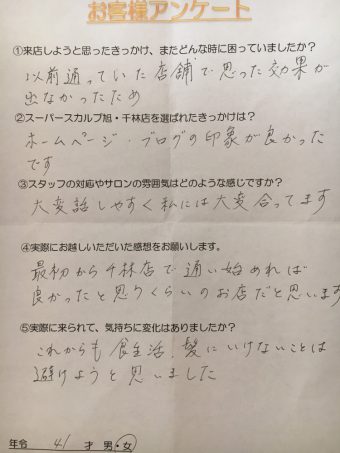 お客様アンケート
①来店しようと思ったきっかけ、またどんな時に困っていましたか？
以前通っていた店舗で思った効果が
出なかったため
②スーパースカルプ旭・千林店を選ばれたきっかけは？
ホームページ・ブログの印象が良かった
です
③スタッフの対応やサロンの雰囲気はどのような感じですか？
大変話しやすく私には大変合ってます
④実際にお越しいただいた感想をお願いします。
最初から千林店で通い始めれば
良かったと思うくらいのお店だと思います
⑤実際に来られて、気持ちに変化はありましたか？
これからも食生活、髪にいけないことは
避けようと思いました
年令 41 才 男・女